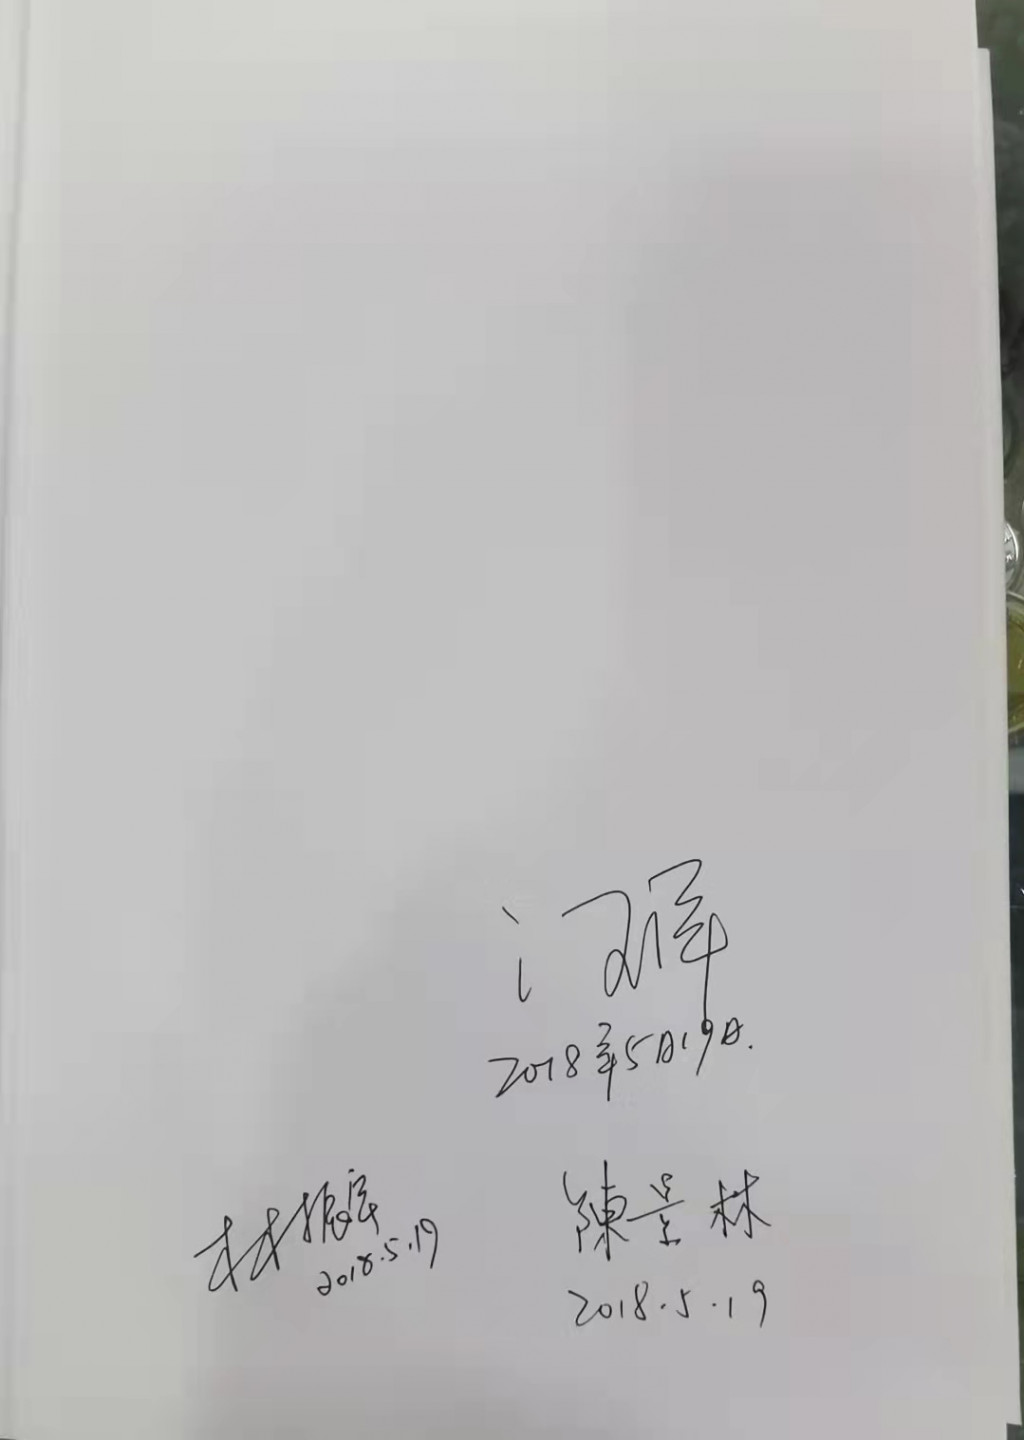 2018年5月19日.
林振宇
2018.5.19
陳景林
2018.5.19